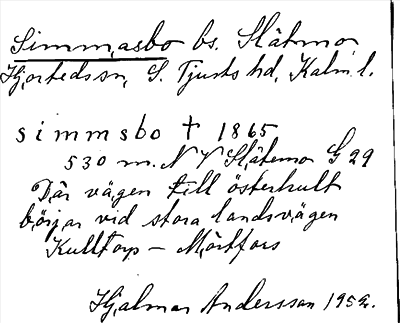 Simmasbo bs. Slätmo
Hjorteds sn, S. Tjusts hd, Kalm. l.
simmsbo † 1865
530 m. N V Slätemo G 29
Där vägen till österhult
börjar vid stora landsvägen
Kulltorp - Mörtfors
Hjalmar Andersson 1952.